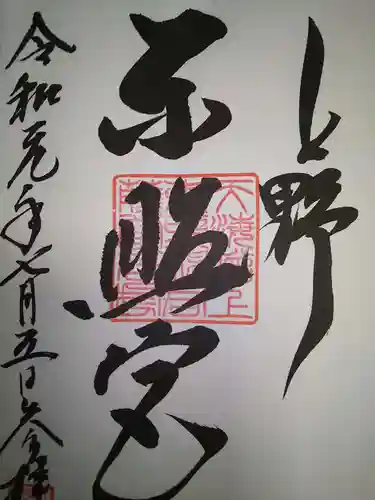 上野
東照宮
令和元年七月五日参拝